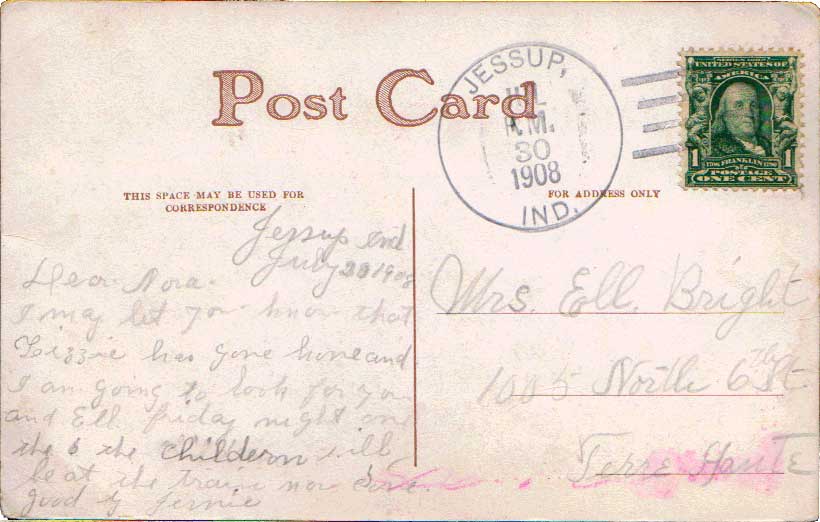 Post Card
THIS SPACE MAY BE USED FOR
CORRESPONDENCE
FOR ADDRESS ONLY
JESSUP,
30
1908
IND.
SERIES 1902
UNITED STATES OF
AMERICA
1 FRANKLIN 1
POSTAGE
ONE CENT
Jessup Ind
July 1908
Dear Nora.
I may let you know that
Lizzie has gone home and
I am going to look for you
and Ell friday night on
the 6 the childern will
be at the train now
good by
Mrs. Ell. Bright
1005 North 6th St
Terre Haute